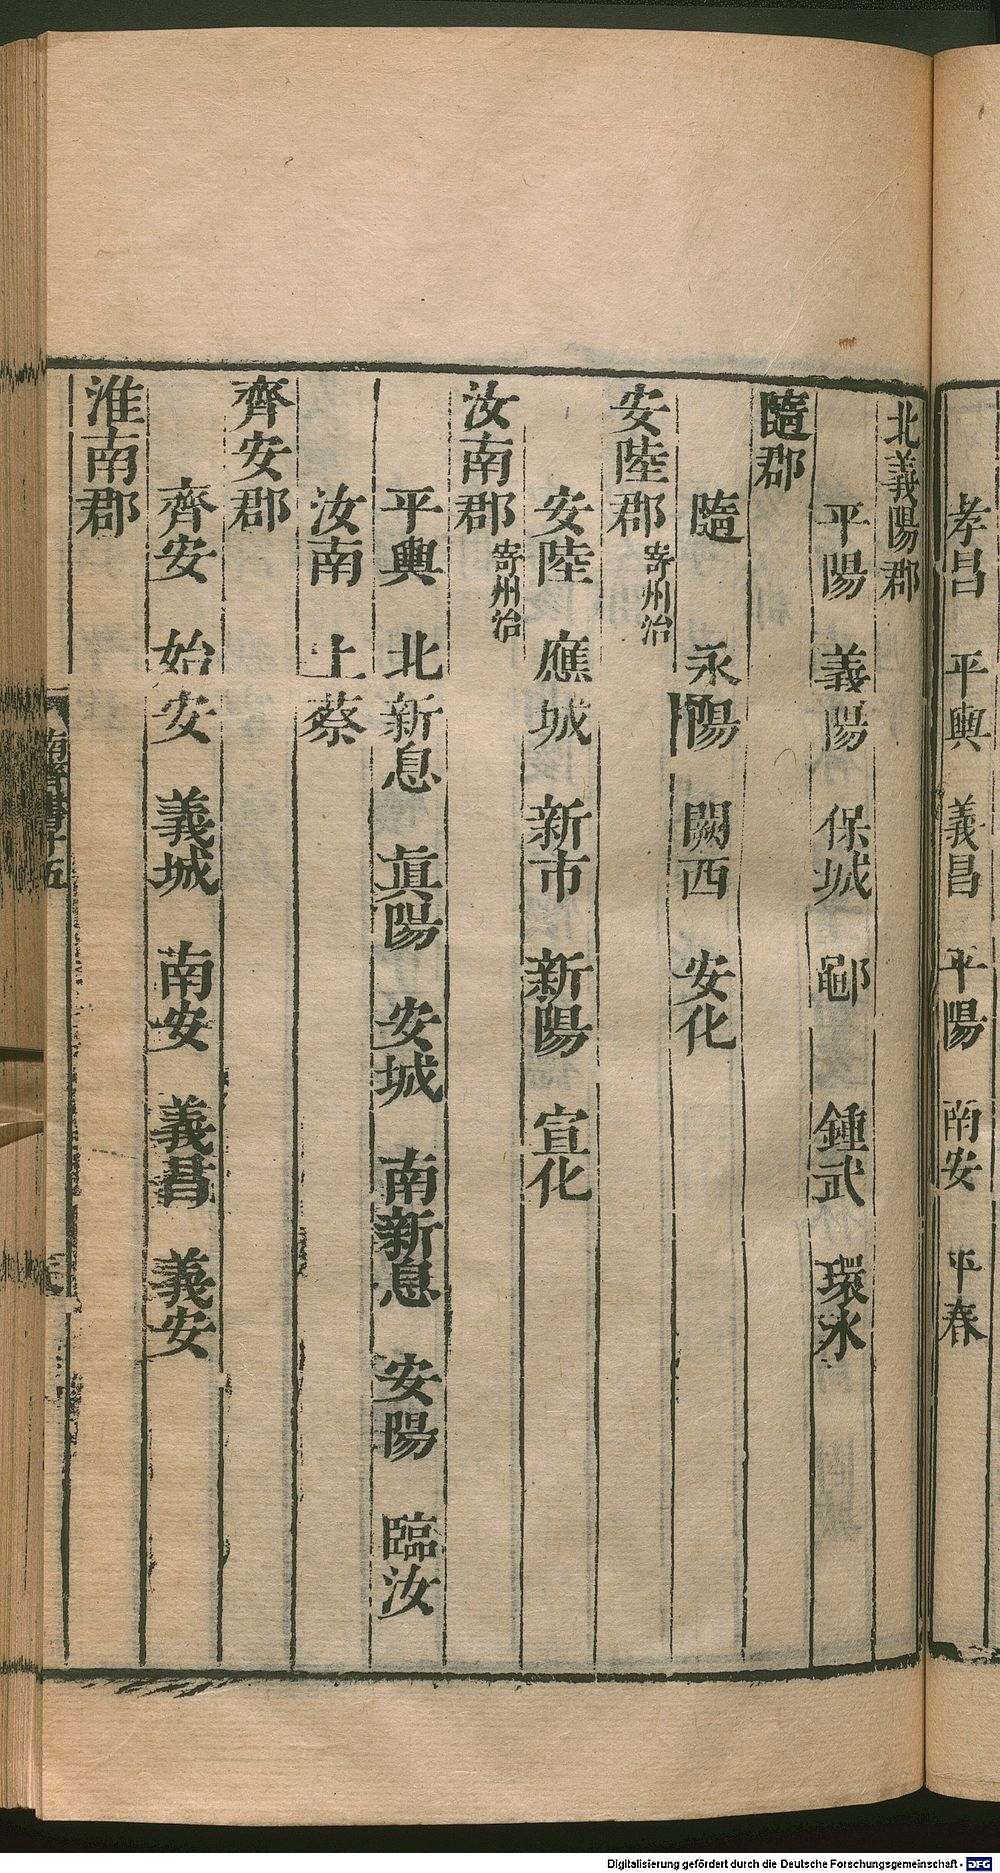 孝昌 平輿 義昌 平陽 南安 平春
北義陽郡
平陽 義陽 保城 鄳 鍾武 環水
隨郡
隨 永陽 闕西 安化
安陸郡寄州治
安陸 應城 新市 新陽 宣化
汝南郡寄州治
平輿 北新息 眞陽 安城 南新息 安陽 臨汝
汝南 上蔡
齊安郡
齊安 始安 義城 南安 義昌 義安
淮南郡
南齊書十五
Digitalisierung gefördert durch die Deutsche Forschungsgemeinschaft - DFG